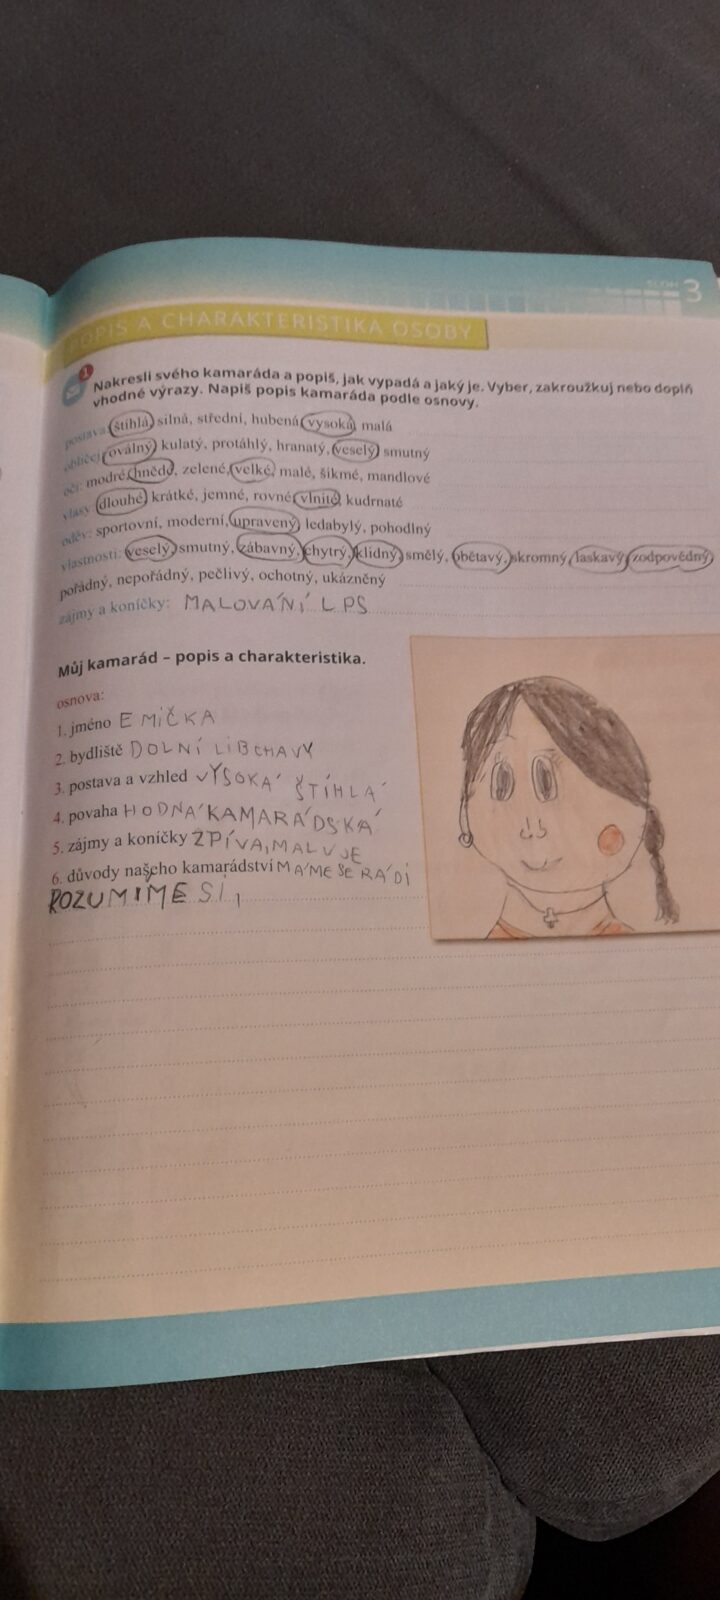 SLOH 3
POPIS A CHARAKTERISTIKA OSOBY
1
Nakresli svého kamaráda a popiš, jak vypadá a jaký je. Vyber, zakroužkuj nebo doplň
vhodné výrazy. Napiš popis kamaráda podle osnovy.
postava: štíhlá, silná, střední, hubená, vysoká, malá
obličej: oválný, kulatý, protáhlý, hranatý, veselý, smutný
oči: modré, hnědé, zelené, velké, malé, šikmé, mandlové
vlasy: dlouhé, krátké, jemné, rovné, vlnité, kudrnaté
oděv: sportovní, moderní, upravený, ledabylý, pohodlný
vlastnosti: veselý, smutný, zábavný, chytrý, klidný, smělý, obětavý, skromný, laskavý, zodpovědný,
pořádný, nepořádný, pečlivý, ochotný, ukázněný
zájmy a koníčky: MALOVÁNÍ LPS
Můj kamarád – popis a charakteristika.
osnova:
1. jméno EMIČKA
2. bydliště DOLNÍ LIBCHAVY
3. postava a vzhled VYSOKÁ ŠTÍHLÁ
4. povaha HODNÁ KAMARÁDSKÁ
5. zájmy a koníčky ZPÍVA, MALUJE
6. důvody našeho kamarádství MÁME SE RÁDI
ROZUMÍME SI,